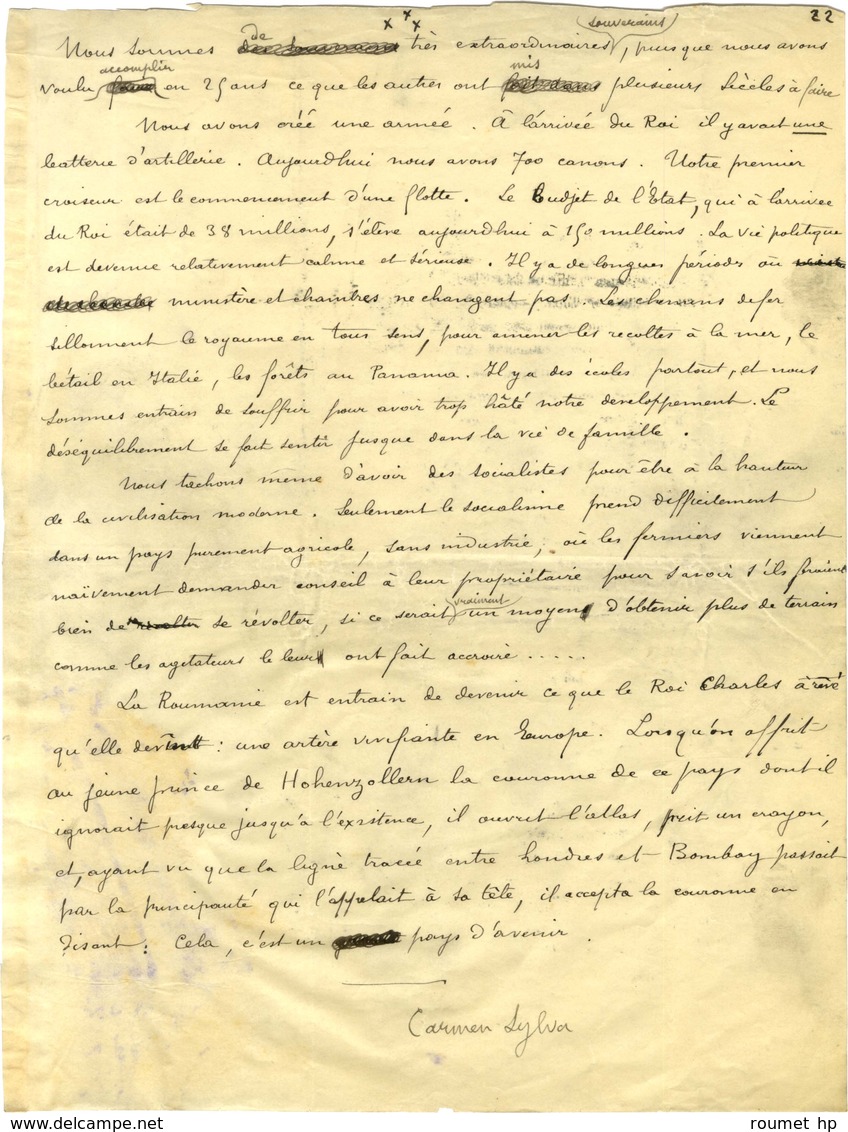 22
x x x
Nous sommes de très extraordinaires souverains, puisque nous avons
voulu accomplir en 25 ans ce que les autres ont mis plusieurs siècles à faire
Nous avons créé une armée. À l'arrivée du Roi il y avait une
batterie d'artillerie. Aujourd'hui nous avons 700 canons. Notre premier
croiseur est le commencement d'une flotte. Le budjet de l'Etat, qui à l'arrivée
du Roi était de 38 millions, s'élève aujourd'hui à 150 millions. La vie politique
est devenue relativement calme et sérieuse. Il y a de longues périodes où
ministère et chambres ne changent pas. Les chemins de fer
sillonnent le royaume en tous sens, pour amener les récoltes à la mer, le
bétail en Italie, les forêts au Panama. Il y a des écoles partout, et nous
sommes entrain de souffrir pour avoir trop hâté notre developpement. Le
déséquilibrement se fait sentir jusque dans la vie de famille.
Nous tachons même d'avoir des socialistes pour être à la hauteur
de la civilisation moderne. Seulement le socialisme prend difficilement
dans un pays purement agricole, sans industrie, où les fermiers viennent
naïvement demander conseil à leur propriétaire pour savoir s'ils feraient
bien de se révolter, si ce serait vraiment un moyen d'obtenir plus de terrain
comme les agitateurs le leur ont fait accroire.....
La Roumanie est entrain de devenir ce que le Roi Charles a rêvé
qu'elle devînt : une artère vivifiante en Europe. Lorsqu'on offrit
au jeune prince de Hohenzollern la couronne de ce pays dont il
ignorait presque jusqu'à l'existence, il ouvrit l'atlas, prit un crayon,
et, ayant vu que la ligne tracée entre Londres et Bombay passait
par la principauté qui l'appelait à sa tête, il accepta la couronne en
disant : Cela, c'est un pays d'avenir.
Carmen Sylva
roumet hp